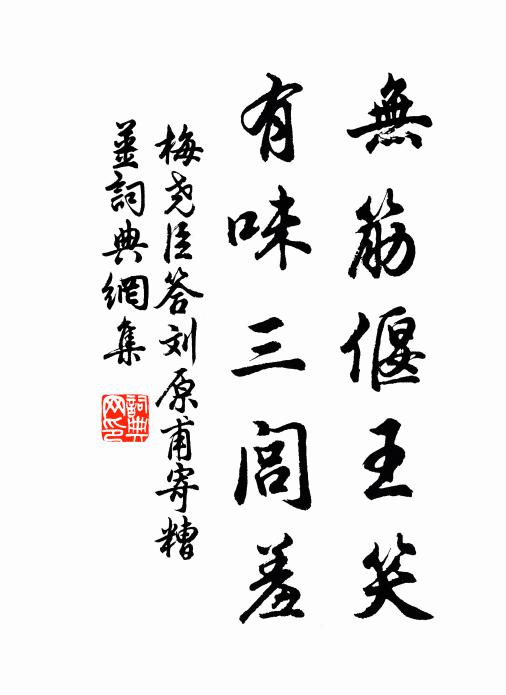 無筋偃王笑
有味三闾羞
梅尧臣答刘原甫寄糟
薑詞典網集
詞典
网印